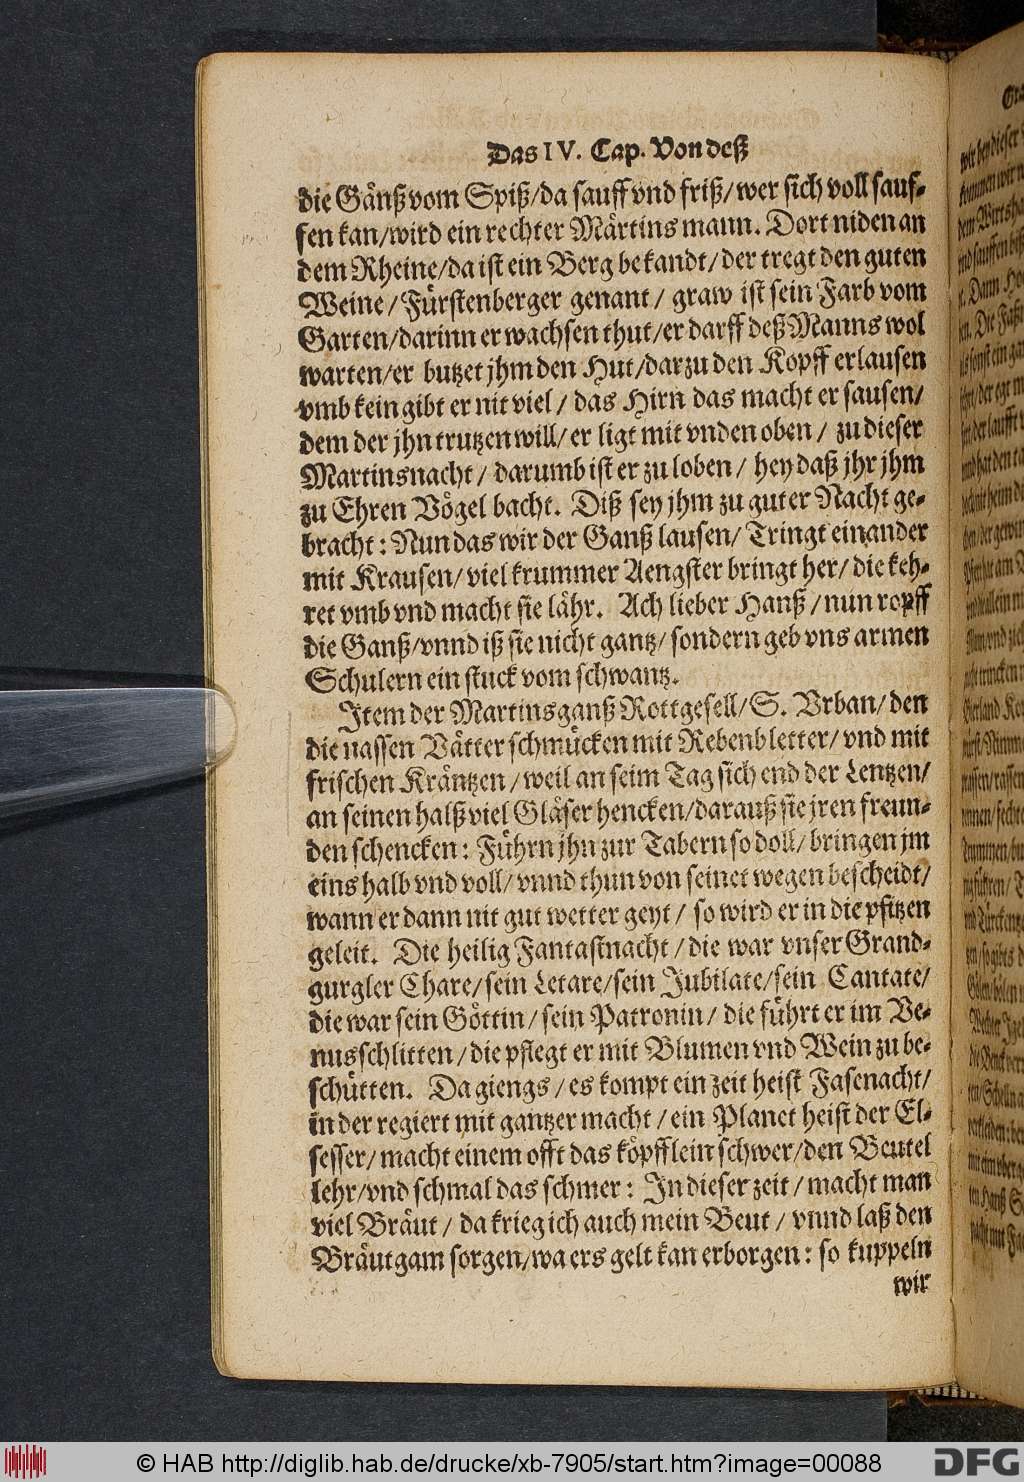 Das IV. Cap. Von deß
die Gänß vom Spiß/da sauff vnd friß/wer sich voll sauf-
fen kan/wird ein rechter Märtins mann. Dort niden an
dem Rheine/da ist ein Berg bekandt/der tregt den guten
Weine/Fürstenberger genant/ graw ist sein Farb vom
Garten/darinn er wachsen thut/er darff deß Manns wol
warten/er butzet jhm den Hut/darzu den Kopff erlausen
vmb kein gibt er nit viel/ das Hirn das macht er sausen/
dem der jhn trutzen will/er ligt mit vnden oben/ zu dieser
Martinsnacht/ darumb ist er zu loben/ hey daß jhr jhm
zu Ehren Vögel bacht. Diß sey jhm zu guter Nacht ge-
bracht: Nun das wir der Ganß lausen/ Tringt einander
mit Krausen/viel krummer Aengster bringt her/ die keh-
ret vmb vnd macht sie lähr. Ach lieber Hanß/nun ropff
die Ganß/vnnd iß sie nicht gantz/ sondern geb vns armen
Schulern ein stuck vom schwantz.
Item der Martinsganß Rottgesell/S. Vrban/den
die nassen Vätter schmücken mit Rebenbletter/vnd mit
frischen Kräntzen/weil an seim Tag sich end der Lentzen/
an seinen halß viel Gläser hencken/darauß sie jren freun-
den schencken: Führn jhn zur Tabern so doll/bringen jm
eins halb vnd voll/vnnd thun von seinet wegen bescheidt/
wann er dann nit gut wetter geyt/ so wird er in die pfitzen
geleit. Die heilig Fantastnacht/die war vnser Grand-
gurgler Chare/sein Letare/sein Jubilate/sein Cantate/
die war sein Göttin/sein Patronin/ die führt er im Ve-
nusschlitten/die pflegt er mit Blumen vnd Wein zu be-
schütten. Da giengs/es kompt ein zeit heist Fasenacht/
in der regiert mit gantzer macht/ein Planet heist der El-
sesser/macht einem offt das köpfflein schwer/den Beutel
lehr/vnd schmal das schmer: In dieser zeit/macht man
viel Bräut/ da krieg ich auch mein Beut/ vnnd laß den
Bräutgam sorgen/wa ers gelt kan erborgen: so kuppeln
wir
© HAB http://diglib.hab.de/drucke/xb-7905/start.htm?image=00088
DFG